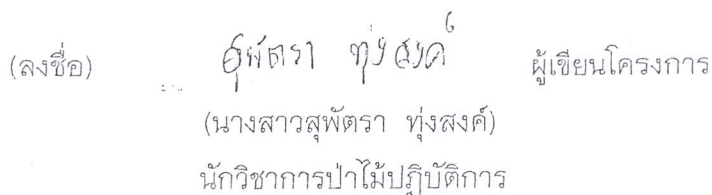 (ลงชื่อ) สุพัตรา ทุ่งสงค์ ผู้เขียนโครงการ
(นางสาวสุพัตรา ทุ่งสงค์)
นักวิชาการป่าไม้ปฏิบัติการ